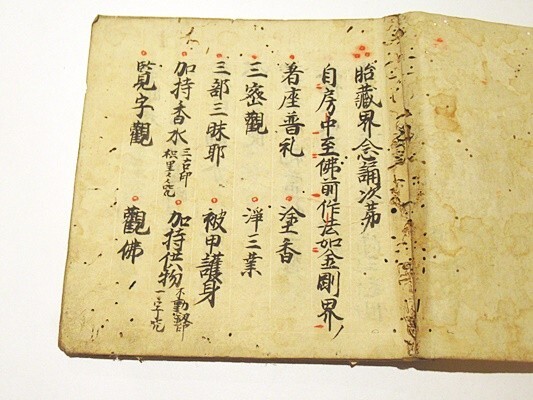 胎藏界念誦次苐
自房中至佛前作法如金剛界
着座普礼 塗香
三密觀 淨三業
三部三昧耶 被甲護身
加持香水 三古印 枳里々々咒 加持供物 不動 印 一字咒
覧字觀 觀佛